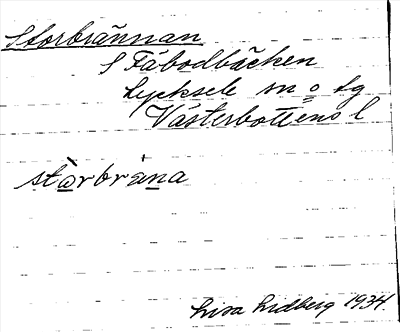 Storbrännan
f Fäbodbäcken
Lycksele sn o tg
Västerbottens l
stàrbrána
Lisa Lidberg 1934.